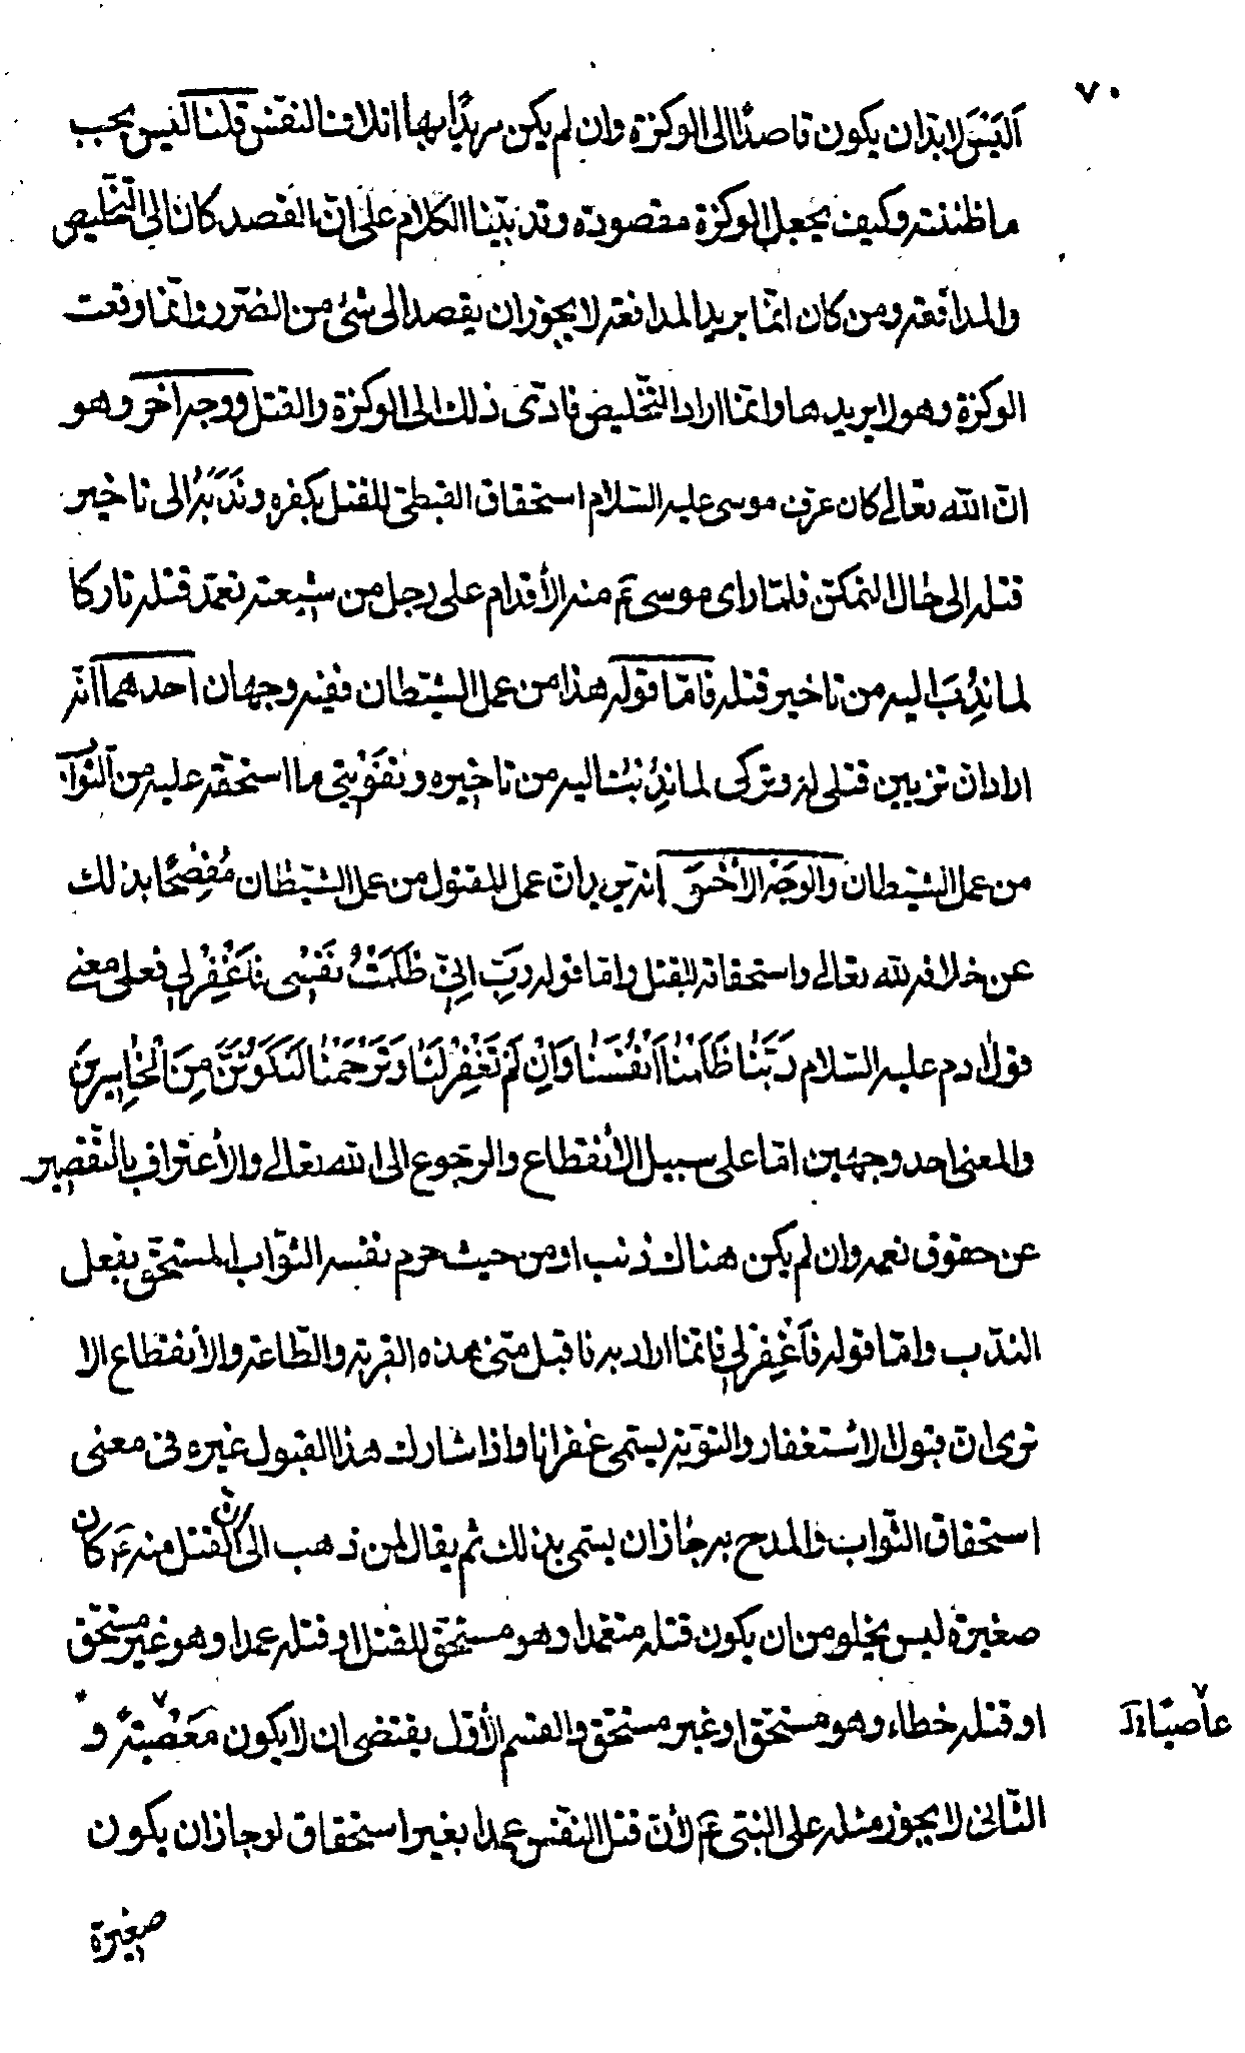 ٧٠
أليس لا بدّ ان يكون قاصدًا الى الوكزة وان لم يكن مريدًا بها اتلاف النفس قلنا ليس يجب
ما ظننته وكيف يجعل الوكزة مقصودة وقد بيّنا الكلام على انّ القصد كان الى التخليص
والمدافعة ومن كان انّما يريد المدافعة لا يجوز ان يقصد الى شئ من الضرر وانّما وقعت
الوكزة وهو لا يريدها وانّما اراد التخليص فادّى ذلك الى الوكزة والقتل ووجه اخر وهو
انّ الله تعالى كان عرف موسى عليه السّلام استحقاق القبطى للقتل بكفره ونَدَبَهُ الى تاخير
قتله الى حال التمكن فلمّا راى موسى ع‍م منه الأقدام على رجل من شيعته تعمّد قتله تاركا
لما نُدِبَ اليه من تاخير قتله فامّا قوله هذا من عمل الشّيطان ففيه وجهان احدهما انّه
اراد ان تزيين قتلى له وتركى لما نُدِبْتُ اليه من تاخيره وتفَوّيتي ما استحقّه عليه من الثواب
من عمل الشّيطان والوجه الأخر انه يريد انّ عمل المقتول من عمل الشّيطان مُفِصْحًا بذلك
عن خلافه لله تعالى واستحقاقه للقتل وامّا قوله رَبِّ اِنّي ظَلَمْتُ نَفَسْى فَاغْفِرْلي فعلى معنى
قول ادم عليه السّلام رَبَّنَا ظَلَمْنَا اَنْفُسَنَا وَاِنْ لَمْ تَغْفِرْ لَنَا وَتَرْحَمْنَا لَنَكَوُنَنَّ مِنَ الْخَاسِرِينَ
والمعنى احد وجهين امّا على سبيل الأنقطاع والرجوع الى الله تعالى والأعتراف بالتّقصير
عن حقوق نعمه وان لم يكن هناك ذنب او من حيث حرم نفسه الثّواب المستحقّ بفعل
النّدب وامّا قوله فاغْفِرْلي فانّما اراد به فاقبل منّى هذه القربة والطّاعة والأنقطاع الا
ترى انّ قبول الأستغفار والتوبة يسمّى غفرانا واذا شارك هذا القبول غيره فى معنى
استحقاق الثّواب والمدح به جاز ان يسمّى بذلك ثم يقال لمن ذهب الى ان القتل منه ع‍م كان
صغيرة ليس يخلو من ان يكون قتله متعمدا وهو مستحقّ للقتل او قتله عمدا وهو غير مستحق
او قتله خطاء وهو مستحق او غير مستحق والقسم الأوّل يقتضى ان لا يكون مَعَصْيَتِهٌ و
عاصيًا
الثّانى لا يجوز مثله على النبى ع‍م لأنّ قتل النّفس عمدا بغير استحقاق لو جاز ان يكون
صغيرة